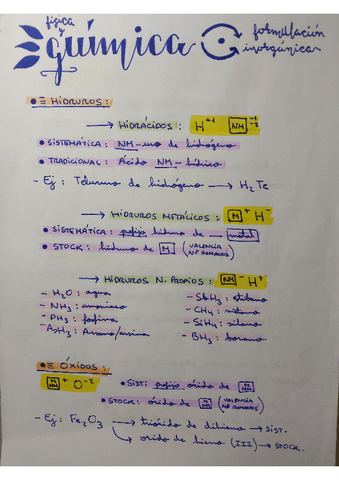 física y química
formulación inorgánica
HIDRUROS:
→ HIDRÁCIDOS: H⁺¹ NM⁻¹ ⁻²
• SISTEMÁTICA: NM-uro de hidrógeno
• TRADICIONAL: Ácido NM-hídrico
- Ej: Telururo de hidrógeno → H₂Te
→ HIDRUROS METÁLICOS: M⁺ H⁻
• SISTEMÁTICA: prefijo hidruro de metal
• STOCK: hidruro de M (VALENCIA Nº ROMANOS)
→ HIDRUROS N. PROPIOS: NM⁻ H⁺
- H₂O: agua
- SbH₃: stibano
- NH₃: amoniaco
- CH₄: metano
- PH₃: fosfina
- SiH₄: silano
- AsH₃: Arsano/arsina
- BH₃: borano
ÓXIDOS:
M NM + O⁻²
• SIST: prefijo óxido de M NM
• STOCK: óxido de M NM (VALENCIA Nº ROMANOS)
- Ej: Fe₂O₃ → trióxido de dihierro → SIST.
→ óxido de hierro (III) → STOCK.